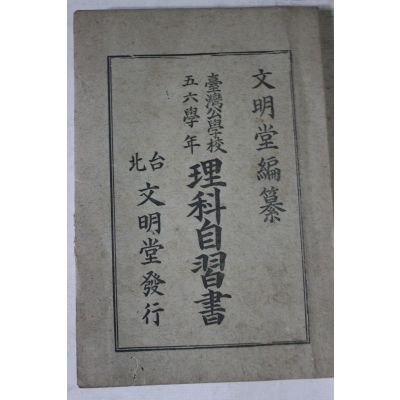 文明堂編纂
臺灣公學校
五六學年
理科自習書
台北
文明堂發行